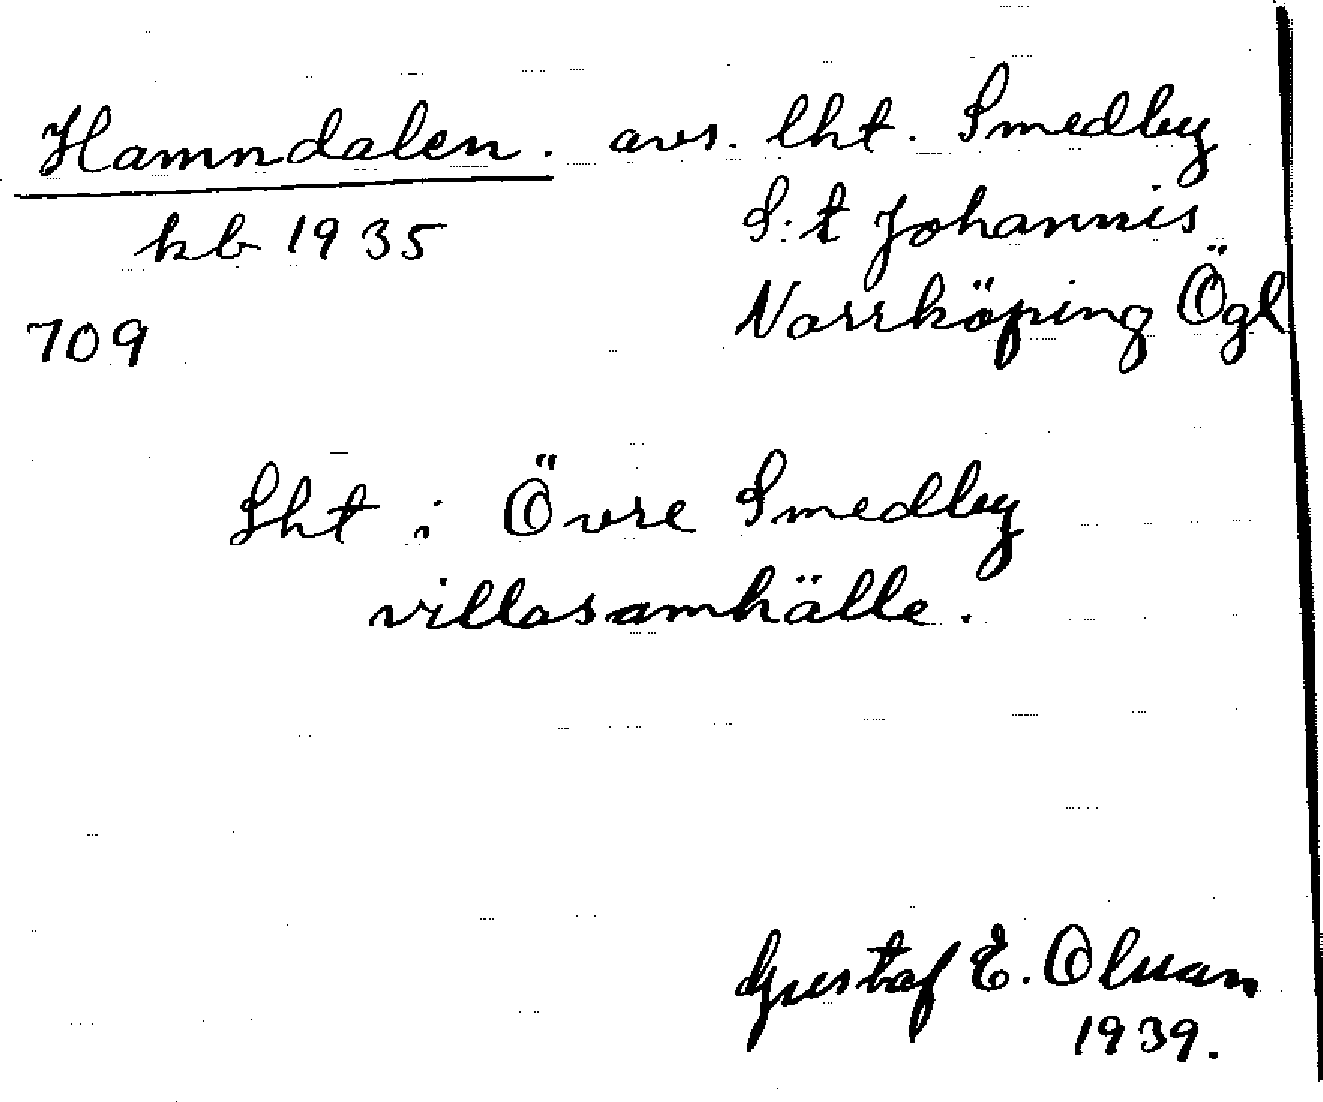 Hamndalen. avs. lht. Smedby
kb 1935 S:t Johannis
709 Norrköping Ögl
Lht i Övre Smedby
villasamhälle.
Gustaf E. Olsson
1939.